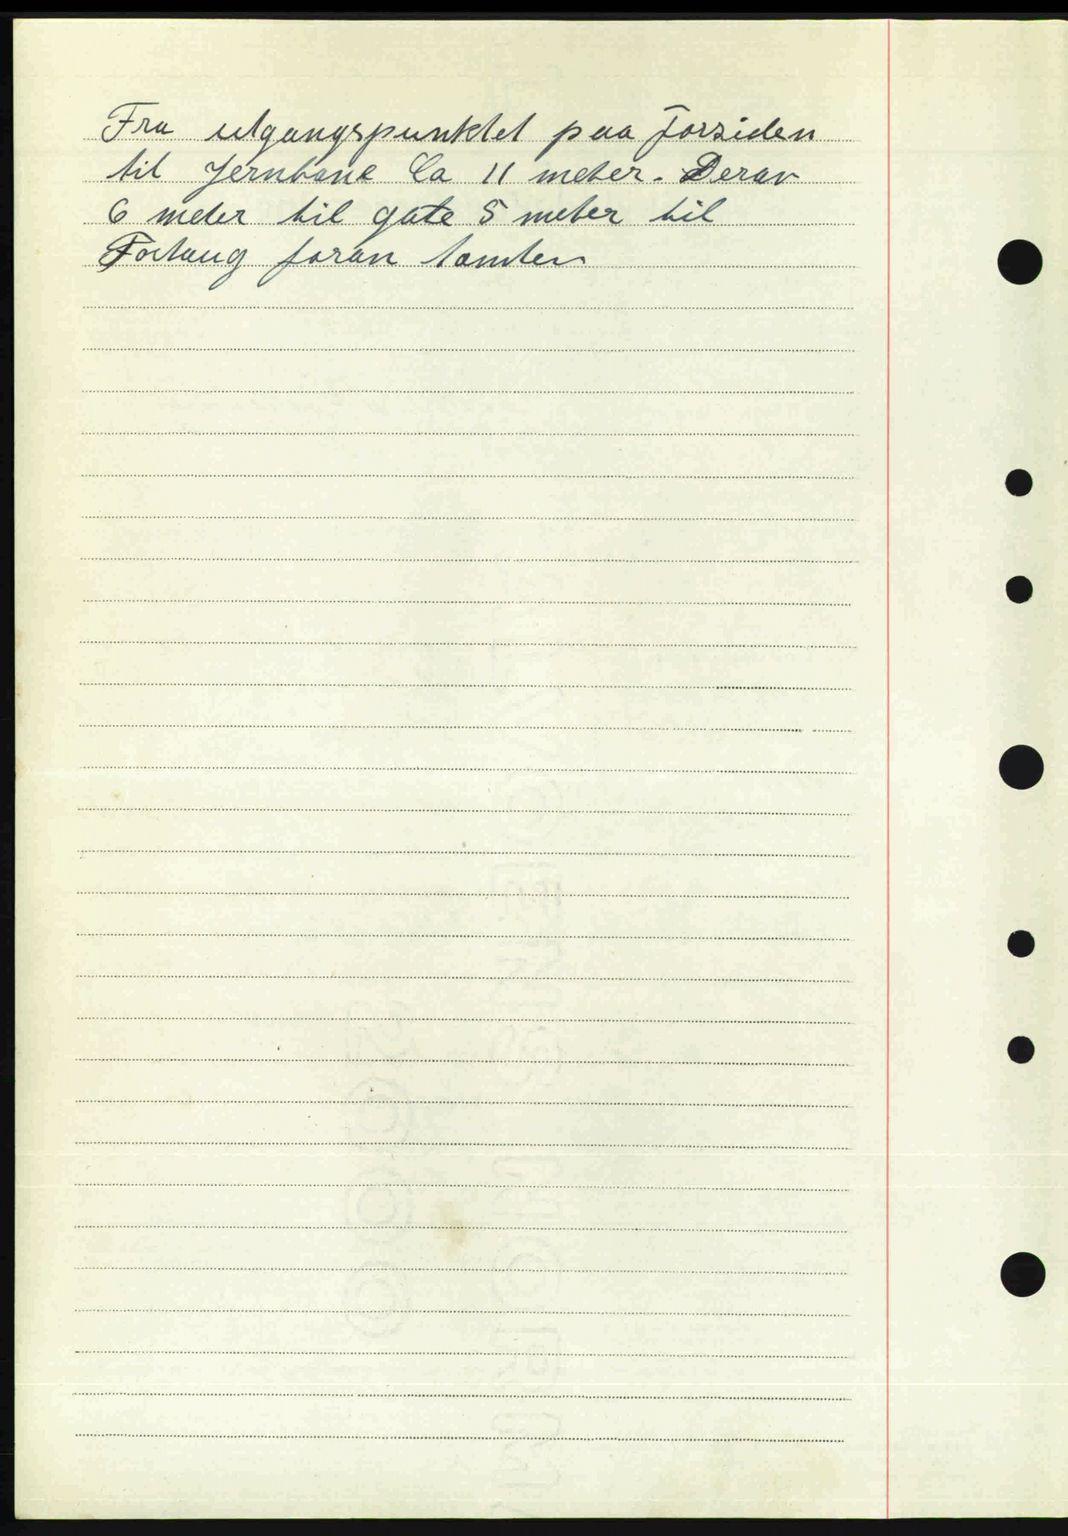 Fra utgangspunktet paa forsiden
til Jernbane Ca 11 meter. Derav
6 meter til gate 5 meter til
Fortaug foran tomten